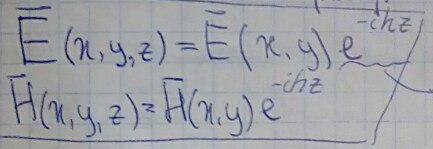 E̅(x,y,z) = E̅(x,y) e^{-ihz}
H̅(x,y,z) = H̅(x,y) e^{-ihz}